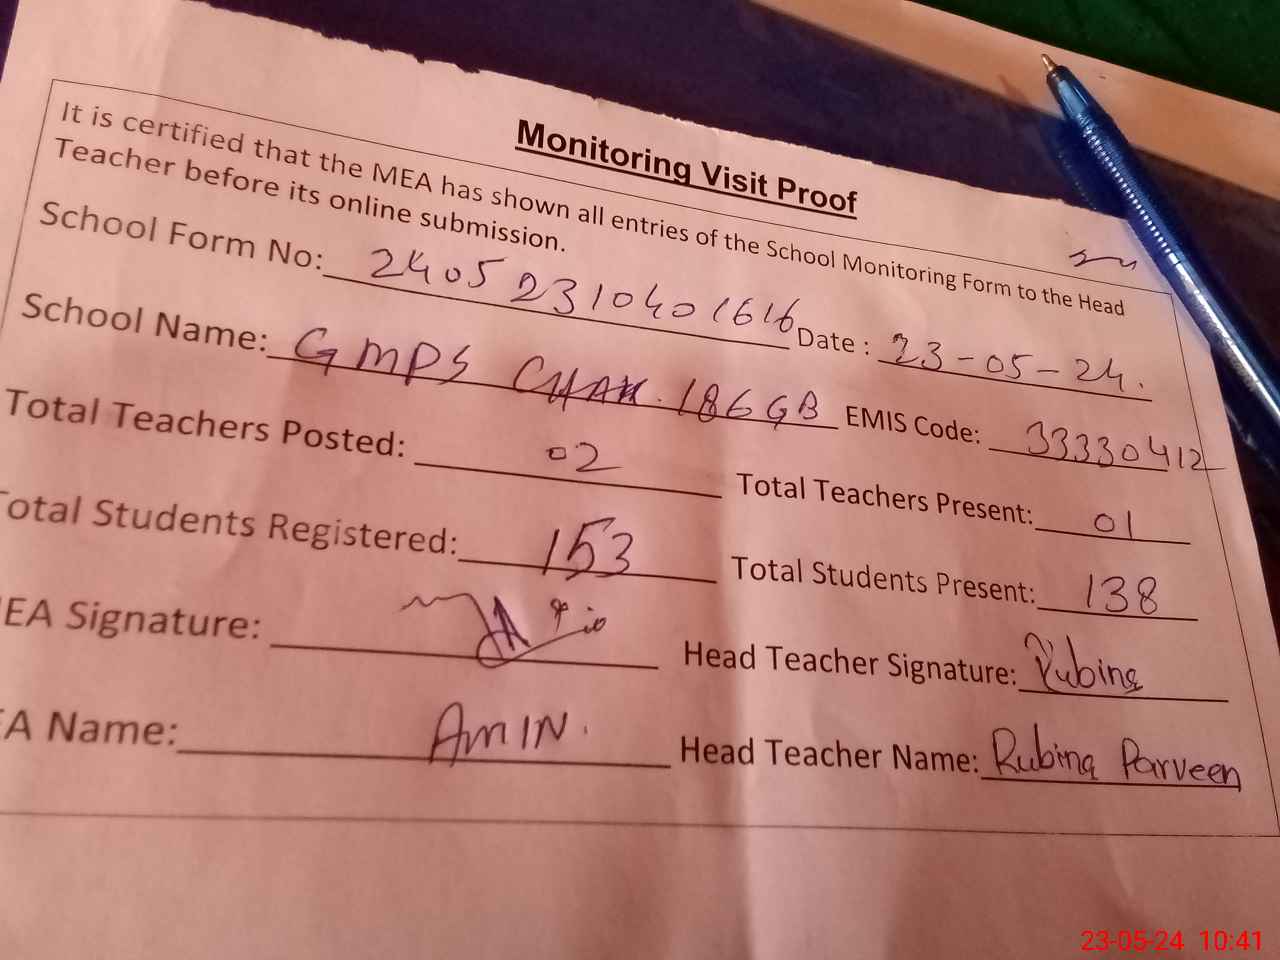 Monitoring Visit Proof
It is certified that the MEA has shown all entries of the School Monitoring Form to the Head
Teacher before its online submission.
School Form No: 2405231040 1616 Date : 23-05-24.
School Name: GMPS CHAK. 186 GB EMIS Code: 33330412
Total Teachers Posted: 02 Total Teachers Present: 01
Total Students Registered: 153 Total Students Present: 138
EA Signature: Head Teacher Signature: Rubina
A Name: AMIN. Head Teacher Name: Rubina Parveen
23-05-24 10:41